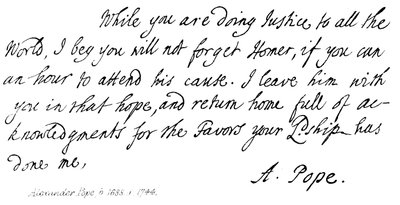 While you are doing Justice to all the
World, I beg you will not forget Homer, if you can
an hour to attend his cause. I leave him with
you in that hope, and return home full of ac-
knowledgments for the Favors your Ldship has
done me,
A. Pope.
Alexander Pope n 1688 + 1744.